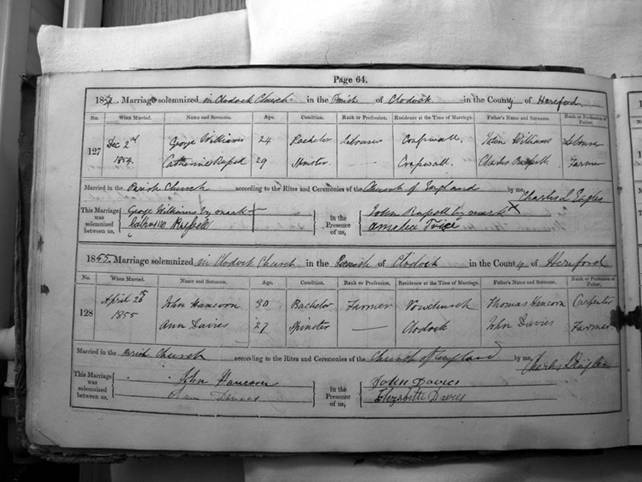 Page 64.
185 Marriage solemnized in Clodock Church in the Parish of Clodock in the County of Hereford
No. When Married. Name and Surname. Age. Condition. Rank or Profession. Residence at the Time of Marriage. Father's Name and Surname. Rank or Profession of Father.
127 Dec 2nd George Williams 24 Bachelor Labourer William Williams
185 Catherine 29 Spinster — Charles Farmer
Married in the Parish Church according to the Rites and Ceremonies of the Church of England by me, Charles L
This Marriage was solemnized between us, George Williams by mark In the Presence of us, John by mark X
Amelia Price
1855. Marriage solemnized in Clodock Church in the Parish of Clodock in the County of Hereford
No. When Married. Name and Surname. Age. Condition. Rank or Profession. Residence at the Time of Marriage. Father's Name and Surname. Rank or Profession of Father.
128 April John 30 Bachelor Farmer Vowchurch Thomas Carpenter
1855 Ann Davies 27 Spinster — Clodock John Davies Farmer
Married in the Parish Church according to the Rites and Ceremonies of the Church of England by me, Charles
This Marriage was solemnized between us, John In the Presence of us, John Davies
Ann Davies Elizabeth Davies